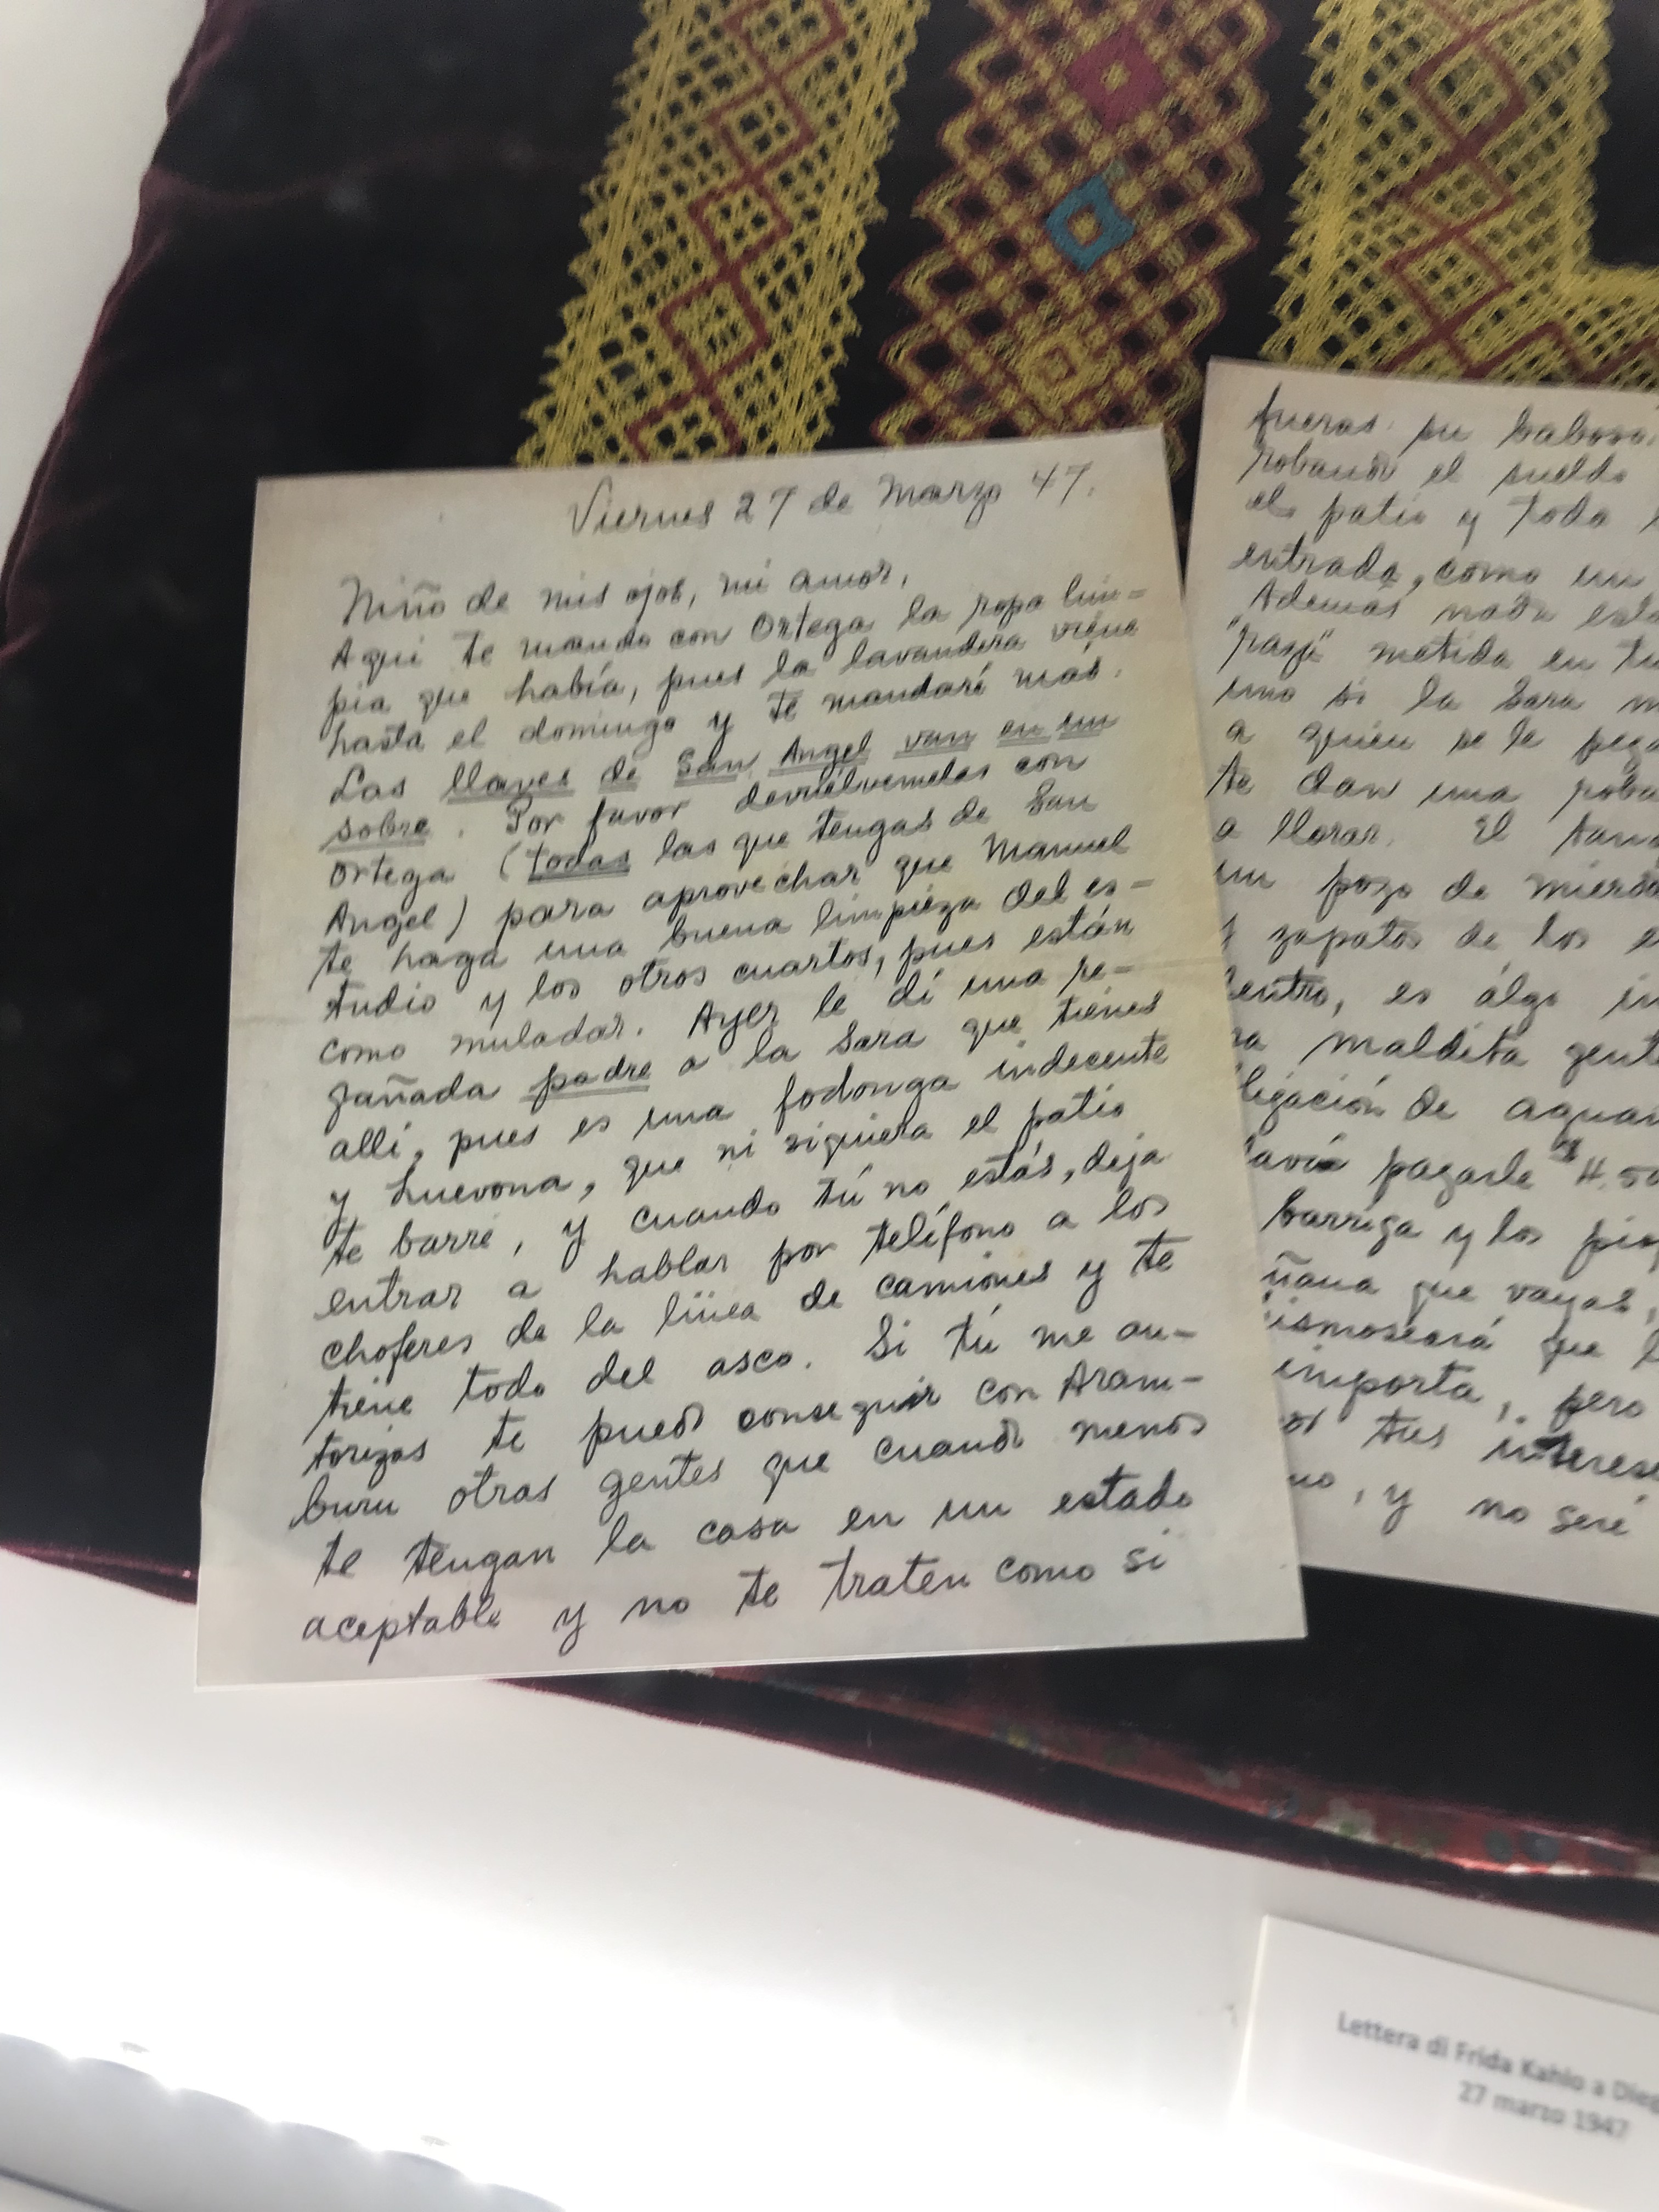 Viernes 27 de Marzo 47.
Niño de mis ojos, mi amor,
Aqui te mando con Ortega la ropa lim-
pia que había, pues la lavandera viene
hasta el domingo y te mandaré mas.
Las llaves de San Angel van en un
sobre. Por favor devuélvemelas con
Ortega (todas las que tengas de San
Angel) para aprovechar que Manuel
te haga una buena limpieza del es-
tudio y los otros cuartos, pues están
como muladar. Ayer le dí una re-
gañada padre a la Sara que tienes
allí, pues es una fodonga indecente
y huevona, que ni siquiera el patio
te barre, y cuando tú no estás, deja
entrar a hablar por teléfono a los
choferes de la línea de camiones y te
tiene todo del asco. Si tú me au-
torizas te puedo conseguir con Aram-
buru otras gentes que cuando menos
te tengan la casa en un estado
aceptable y no te traten como si
fueras su baboso.
robando el sueldo
el patio y toda
entrada, como un
Ademas nada
metida en
uno si la Sara
a quien se le
te dan una
a llorar. El
un pozo de
zapatos de los
es algo
maldita
de
pagarle $4.50
barriga y los
que vayas,
que
importa, pero
tus
y no seré
Lettera di Frida Kahlo a
27 marzo 1947